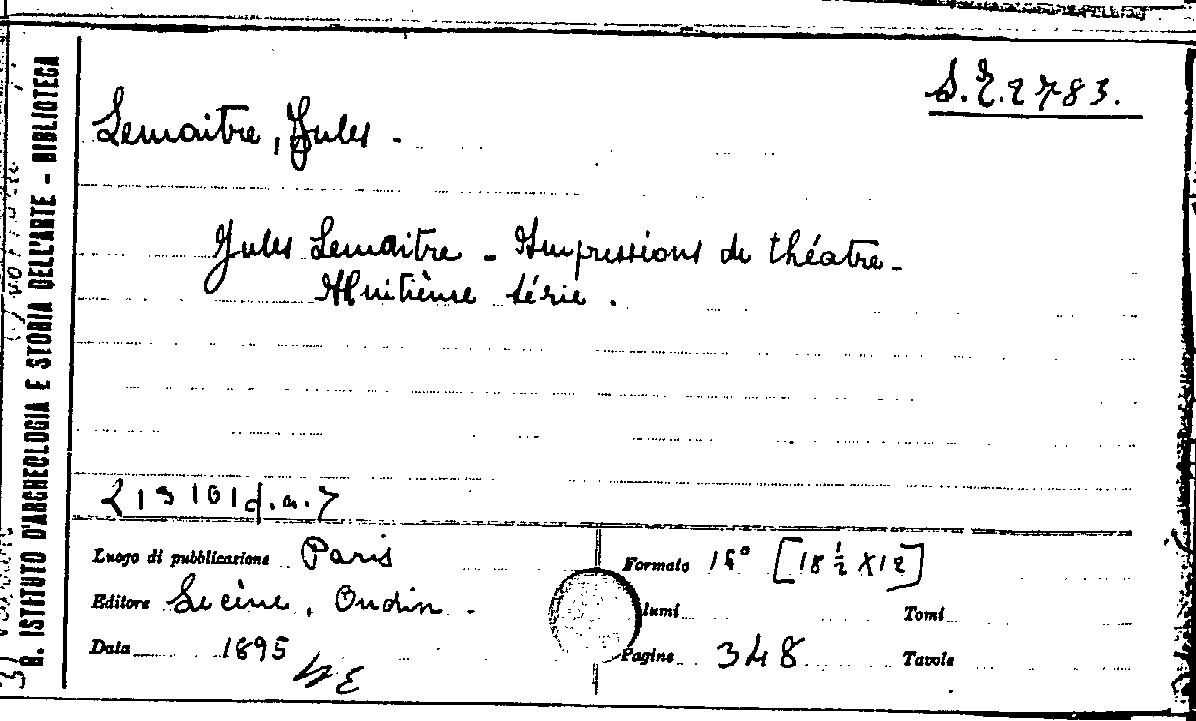 S.E.2783.
Lemaitre, Jules -
Jules Lemaitre - Impressions de théatre -
Huitième série .
Luogo di pubblicazione Paris
Formato 16° [18 ½ X12]
Editore Lecène, Oudin -
lumi
Tomi
Data 1895
Pagine 348
Tavole
R. ISTITUTO D'ARCHEOLOGIA E STORIA DELL'ARTE - BIBLIOTECA